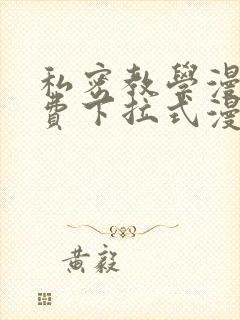 私密教學漫
費下拉式漫
黃毅